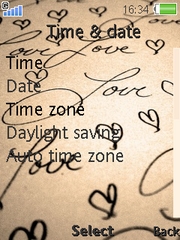 16:34
Time & date
Time
Date
Time zone
Daylight saving
Auto time zone
Love
Love
Love
Love
Select Back